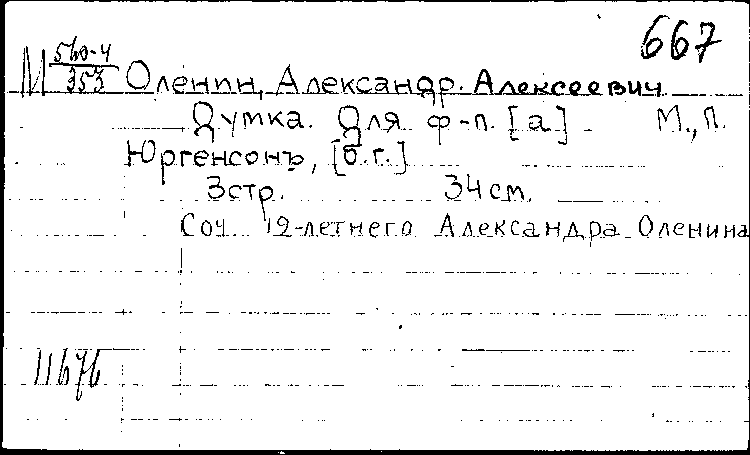 667
М 560-4/353 Оленин, Александр Алексеевич
Думка. Для ф-п. [а] М., П.
Юргенсонъ, [б.г.]
3 стр. 34 см.
Соч. 12-летнего Александра Оленина
11676